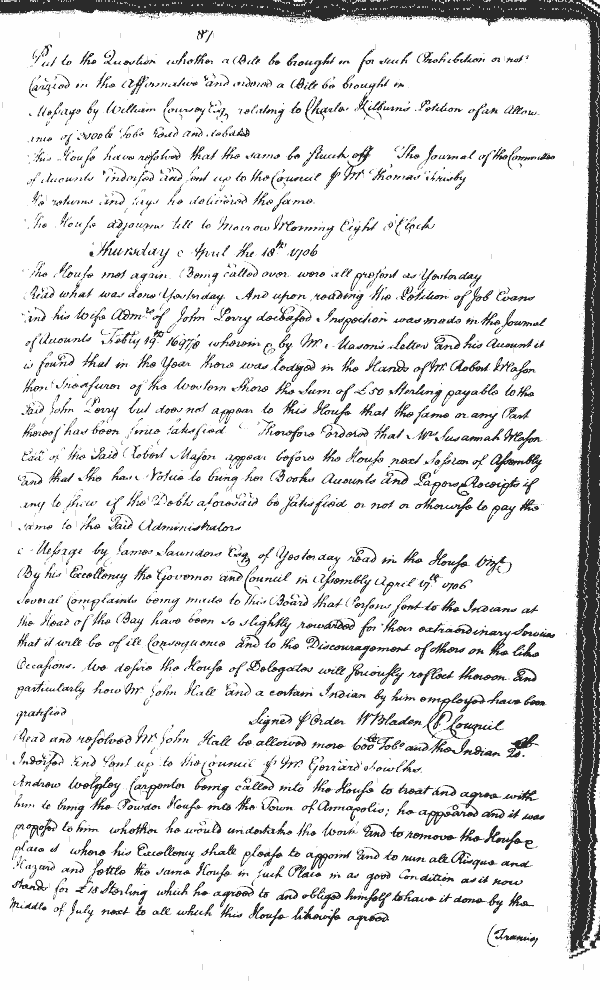 87.
Put to the Question whether a Bill be brought in for such Prohibition or not
Carryed in the Affirmative and ordered a Bill be brought in
Message by William Coursey Esq relating to Charles Kilburn's Petition of an Allow
ance of Tobo Read and debated
This House have resolved that the same be struck off The Journal of the Committee
of Accounts Indorsed and sent up to the Council ⅌ Mr Thomas Frisby
He returns and says he delivered the same.
The House adjourns till to Morrow Morning Eight o'Clock
Thursday April the 18th 1706
The House met again. Being called over were all present as Yesterday
Read what was done Yesterday. And upon reading the Petition of Job Evans
and his Wife Admrs of John Perry deceased Inspection was made in the Journal
of Accounts Febry 19th 1697/8 wherein by Mr Mason's Letter and his Account it
is found that in the Year there was lodged in the Hands of Mr Robert Mason
then Treasurer of the Western Shore the Sum of £50 Sterling payable to the
said John Perry but does not appear to this House that the same or any Part
thereof has been since satisfied Therefore ordered that Mrs Susannah Mason
of the said Robert Mason appear before the House next Session of Assembly
and that she has Notice to bring her Books Accounts and Papers Receipts if
any to shew if the Debts aforesaid be satisfied or not or otherwise to pay the
same to the said Administrators
Message by James Saunders Esq of Yesterday read in the House Vizt
By his Excellency the Governor and Council in Assembly April 17th 1706
Several Complaints being made to this Board that Persons sent to the Indians at
the Head of the Bay have been so slightly rewarded for their extraordinary Services
that it will be of ill Consequence and to the Discouragement of others on the like
Occasions. We desire the House of Delegates will seriously reflect thereon and
particularly how Mr John Hall and a certain Indian by him employed have been
gratified
Signed ⅌ Order W Bladen Cl Council
Read and resolved Mr John Hall be allowed more 600 Tobo and the Indian
Indorsed and sent up to the Council ⅌ Mr Gerrard Fowlks.
Andrew Welpley Carpenter being called into the House to treat and agree with
him to bring the Powder House into the Town of Annapolis; he appeared and it was
proposed to him whether he would undertake the Work and to remove the House &
place it where his Excellency shall please to appoint and to run all Risque and
Hazard and settle the same House in such Place in as good Condition as it now
stands for £18 Sterling which he agreed to and obliges himself to have it done by the
Middle of July next to all which this House likewise agreed
(Francis